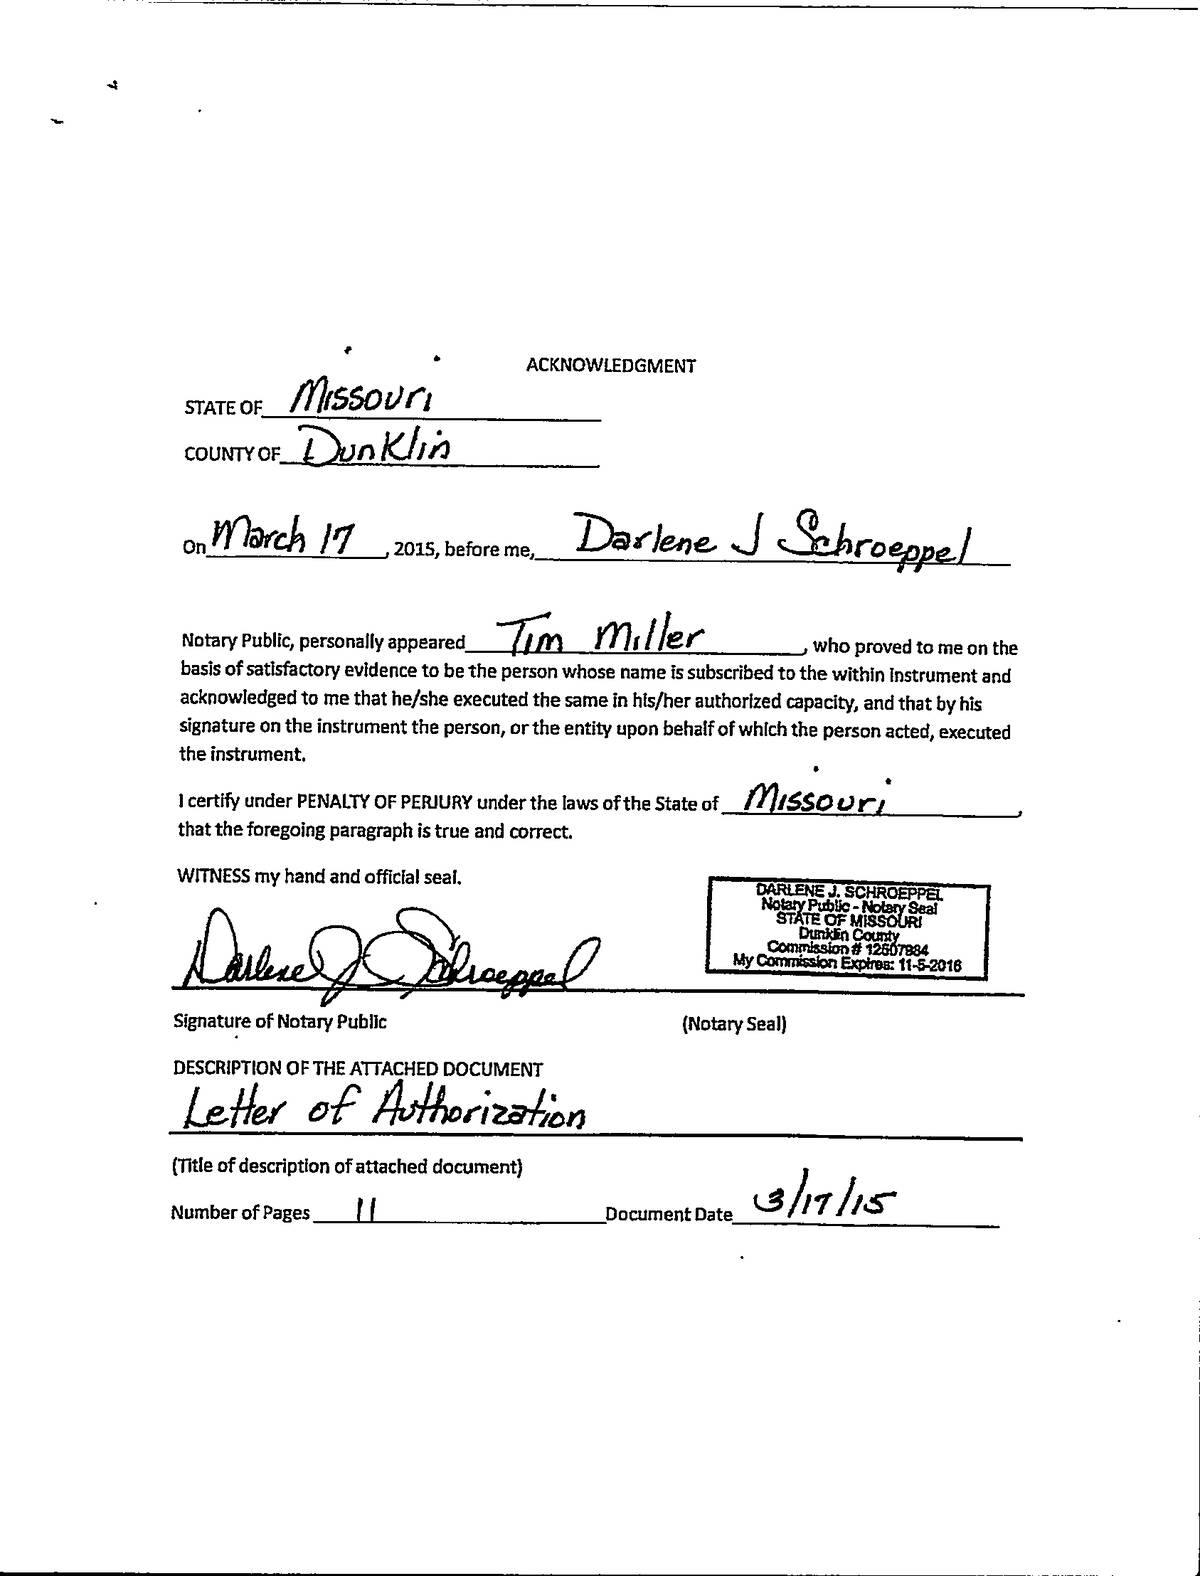 ACKNOWLEDGMENT
STATE OF Missouri
COUNTY OF Dunklin
On March 17, 2015, before me, Darlene J Schroeppel
Notary Public, personally appeared Tim Miller, who proved to me on the
basis of satisfactory evidence to be the person whose name is subscribed to the within instrument and
acknowledged to me that he/she executed the same in his/her authorized capacity, and that by his
signature on the instrument the person, or the entity upon behalf of which the person acted, executed
the instrument.
I certify under PENALTY OF PERJURY under the laws of the State of Missouri,
that the foregoing paragraph is true and correct.
WITNESS my hand and official seal.
DARLENE J. SCHROEPPEL
Notary Public - Notary Seal
STATE OF MISSOURI
Dunklin County
Commission # 12507984
My Commission Expires: 11-5-2016
Darlene J Schroeppel
Signature of Notary Public (Notary Seal)
DESCRIPTION OF THE ATTACHED DOCUMENT
Letter of Authorization
(Title of description of attached document)
Number of Pages 11 Document Date 3/17/15